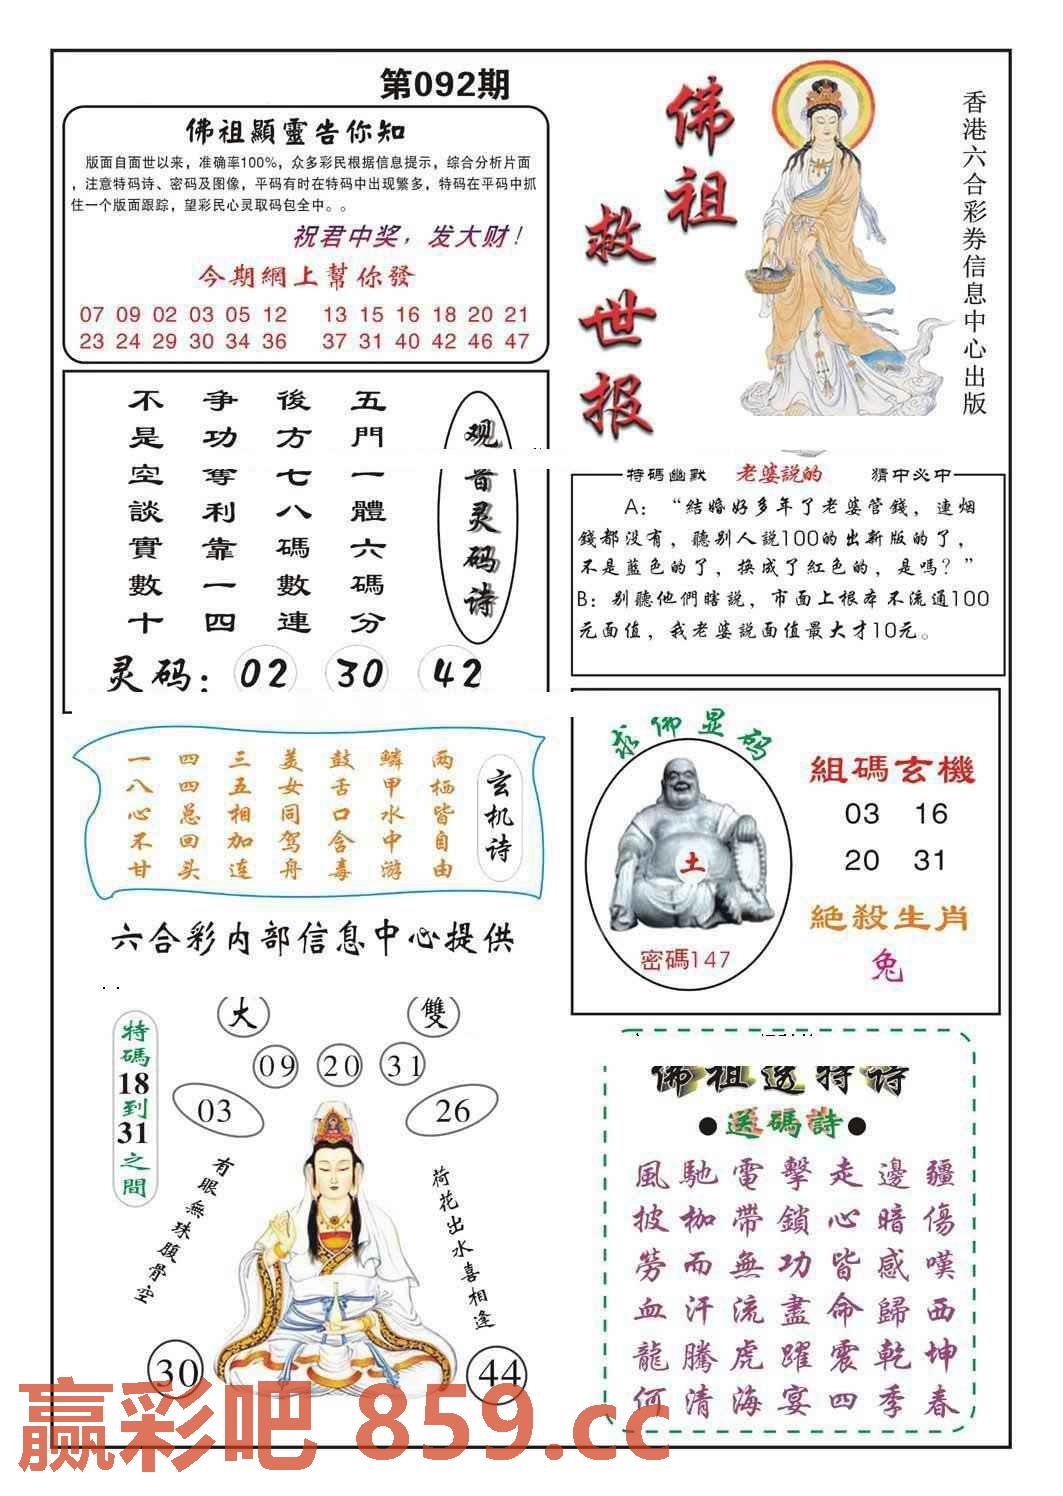 第092期
佛祖顯靈告你知
版面自面世以来，准确率100%，众多彩民根据信息提示，综合分析片面
，注意特码诗、密码及图像，平码有时在特码中出现繁多，特码在平码中抓
住一个版面跟踪，望彩民心灵取码包全中。。
祝君中奖，发大财！
今期網上幫你發
07 09 02 03 05 12 13 15 16 18 20 21
23 24 29 30 34 36 37 31 40 42 46 47
佛祖
救世报
香港六合彩券信息中心出版
观音灵码诗
五門一體六碼分
後方七八碼數連
争功奪利靠一四
不是空談實數十
灵码：02 30 42
特碼幽默 老婆説的 猜中必中
A：“結婚好多年了老婆管錢，連烟
錢都没有，聽别人説100的出新版的了，
不是藍色的了，换成了紅色的，是嗎？”
B：别聽他們瞎説，市面上根本不流通100
元面值，我老婆説面值最大才10元。
玄机诗
两栖皆自由
鳞甲水中游
鼓舌口含毒
美女同驾舟
三五相加连
四四总回头
一八心不甘
求佛显码
土
密碼147
組碼玄機
03 16
20 31
絶殺生肖
兔
六合彩内部信息中心提供
特碼18到31之間
大 雙
09 20 31
03 26
有眼無珠腹骨空
荷花出水喜相逢
30 44
佛祖送特诗
●送碼詩●
風馳電擊走邊疆
披枷帶鎖心暗傷
勞而無功皆感嘆
血汗流盡命歸西
龍騰虎躍震乾坤
何清海宴四季春
赢彩吧 859.cc